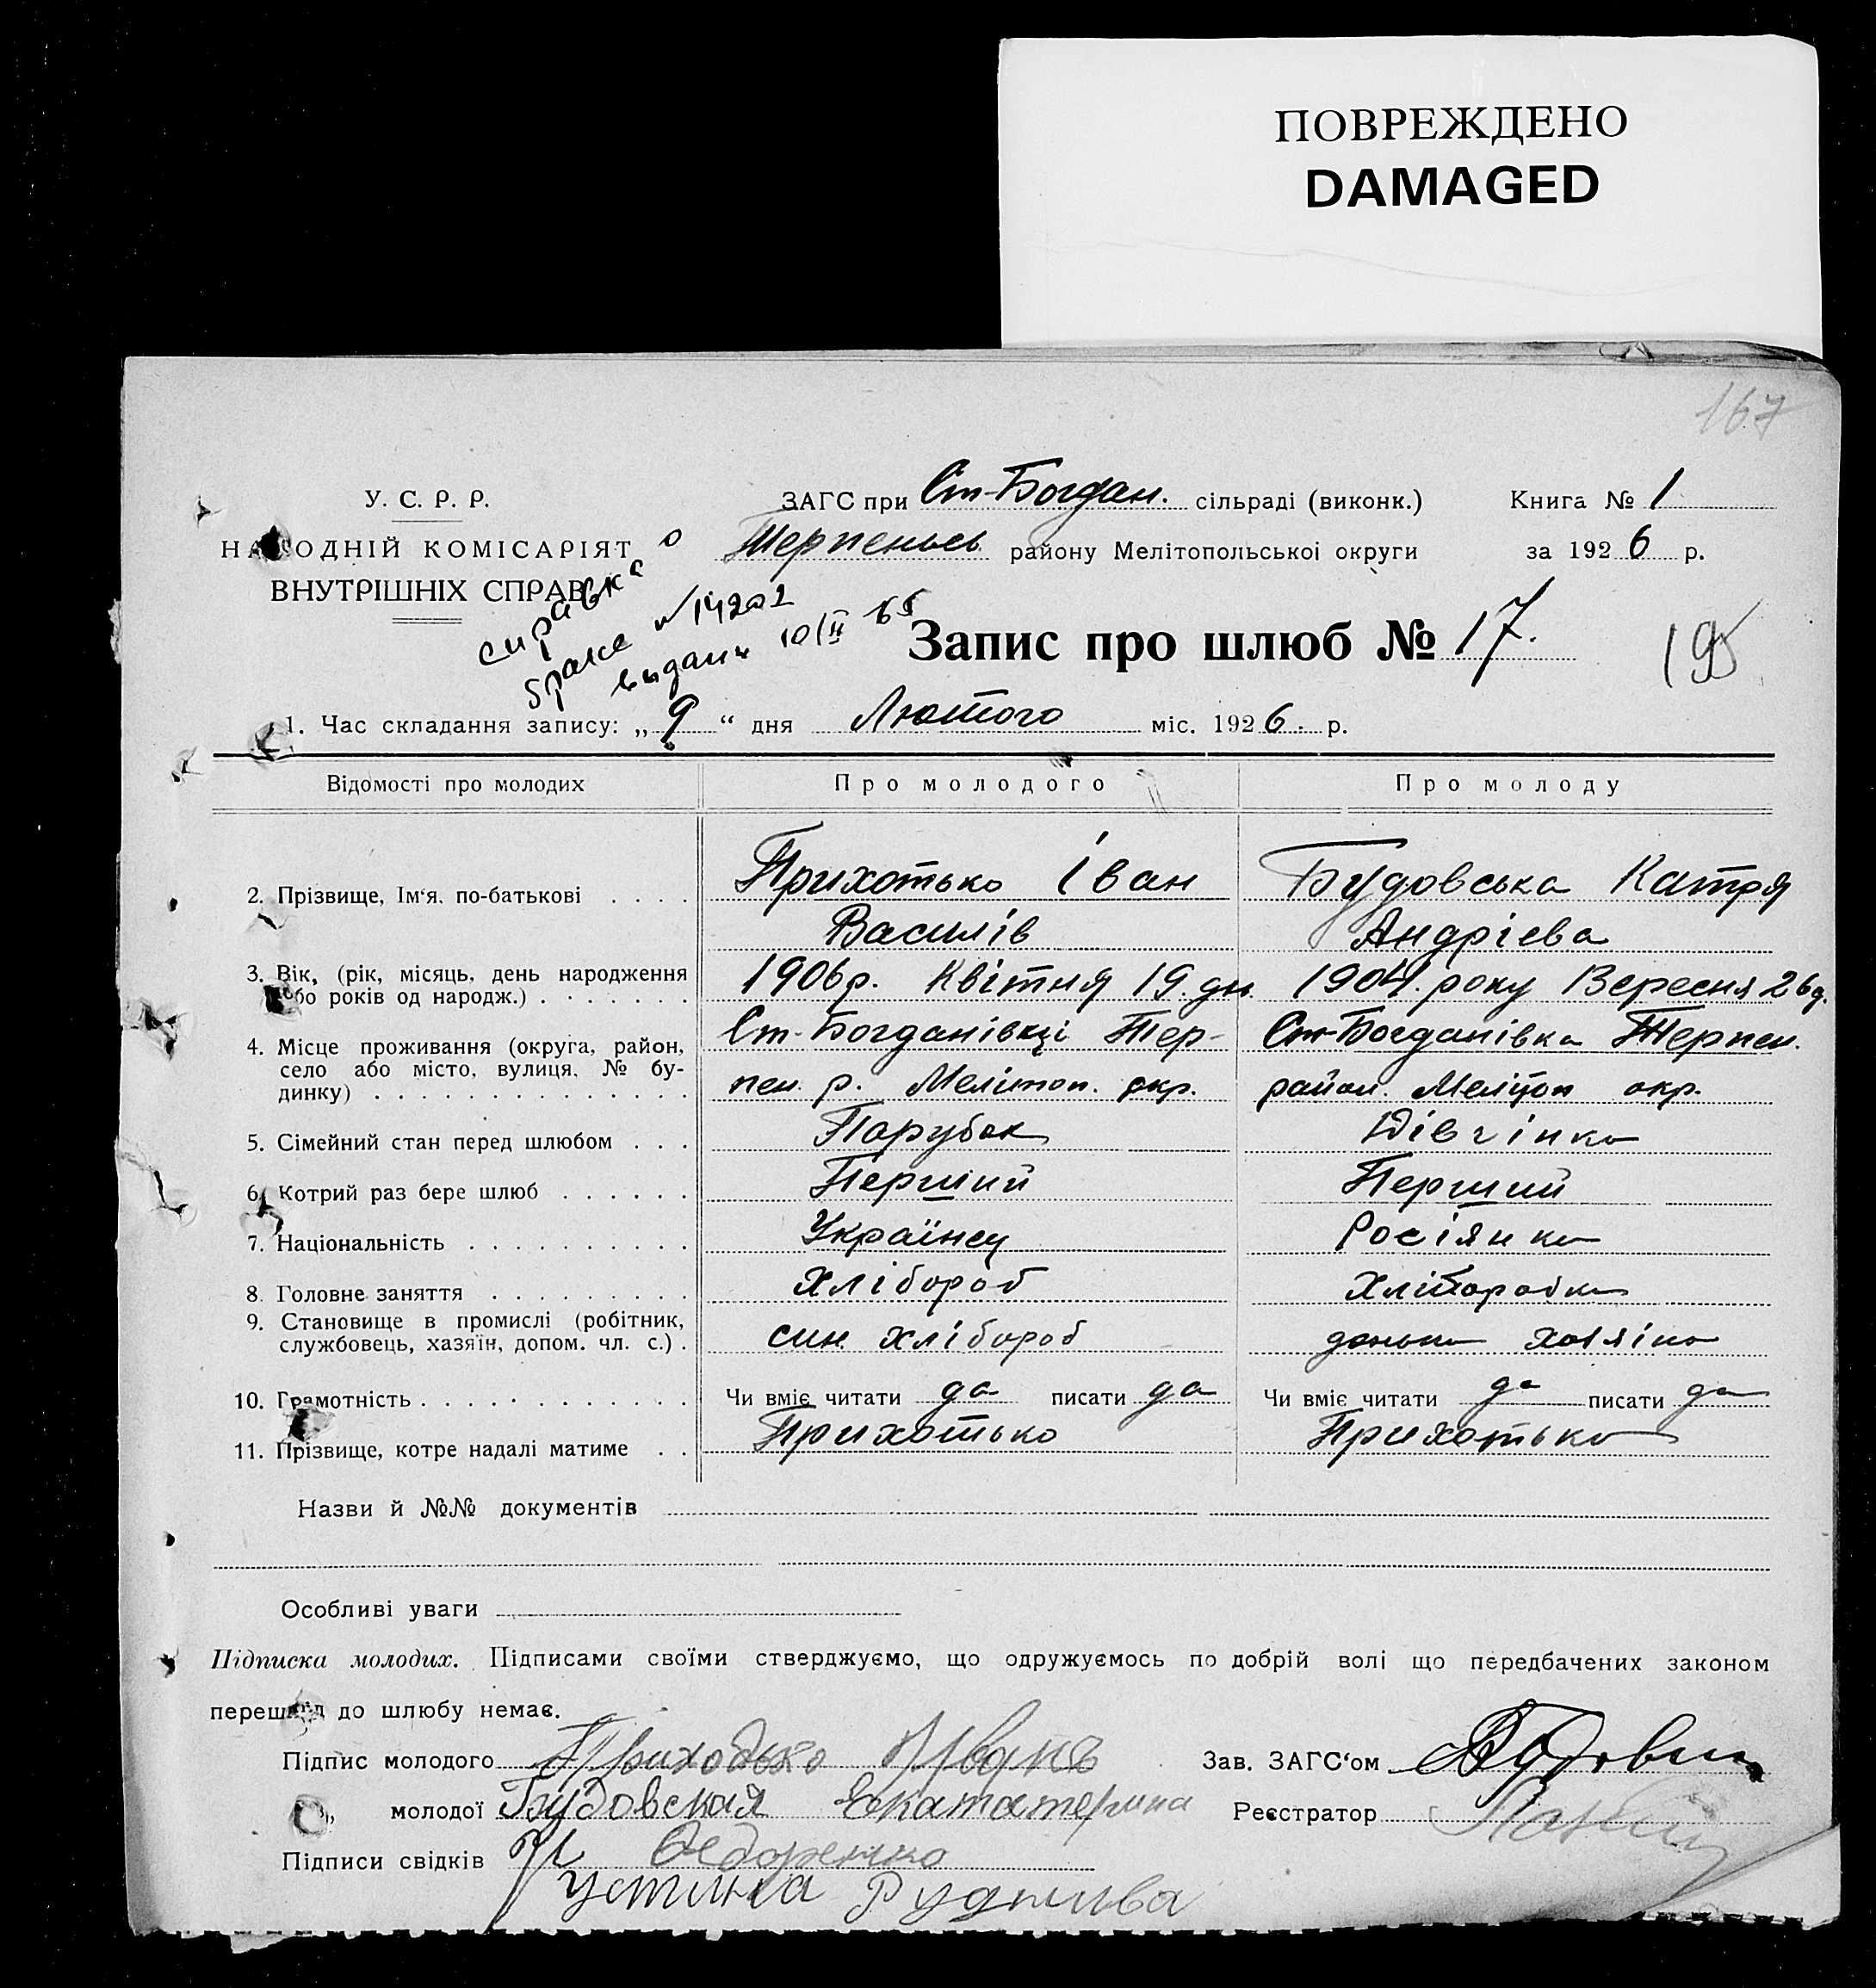 ПОВРЕЖДЕНО
DAMAGED
167
У. С. Р. Р.
НАРОДНІЙ КОМІСАРІЯТ
ВНУТРІШНІХ СПРАВ
ЗАГС при Ст-Богдан. сільраді (виконк.)
Терпеньев району Мелітопольської округи
Книга № 1
за 1926 р.
справка о
браке №14202
выдана 10/II 65
Запис про шлюб № 17.
195
1. Час складання запису: „ 9 “ дня Лютого міс. 1926. р.
Відомості про молодих Про молодого Про молоду
2. Прізвище, Ім'я, по-батькові . . . . Прихотько Іван Будовська Катря
Василів Андрієва
3. Вік, (рік, місяць, день народження 1906 р. Квітня 19. дн. 1904. року Вересня 26 д.
або років од народж.) . . . . . . .
4. Місце проживання (округа, район, Ст-Богданівці Тер- Ст-Богданівка Терпен.
село або місто, вулиця, № бу-
динку) . . . . . . . . . . . . . . пен. р. Мелітоп. окр. район. Меліто́п окр.
5. Сімейний стан перед шлюбом . . . Парубок Дівчінка
6. Котрий раз бере шлюб . . . . . . Перший Перший
7. Національність . . . . . . . . . . Українец Росіянка
8. Головне заняття . . . . . . . . . Хлібороб Хліборобка
9. Становище в промислі (робітник,
службовець, хазяїн, допом. чл. с.) . син. хлібороб донька хазяїна
10. Грамотність . . . . . . . . . . . . Чи вміє читати да писати да Чи вміє читати да писати да
11. Прізвище, котре надалі матиме . . Прихотько Прихотько
Назви й №№ документів
Особливі уваги
Підписка молодих. Підписами своїми стверджуємо, що одружуємось по добрій волі що передбачених законом
перешкод до шлюбу немає.
Підпис молодого Приходько Иванъ Зав. ЗАГС'ом
„ молодої Будовская Екататерина Реєстратор
Підписи свідків Федоренко
Устина Руднива